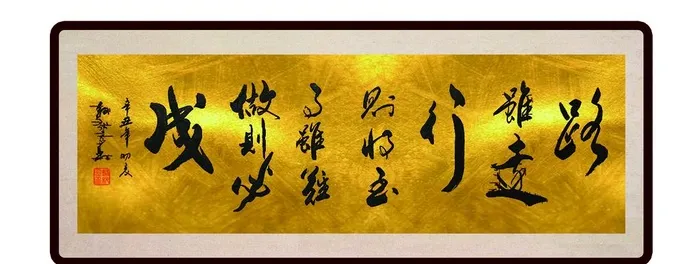 路
雖遠
行
則將至
事雖難
做則必
成
辛丑年初夏